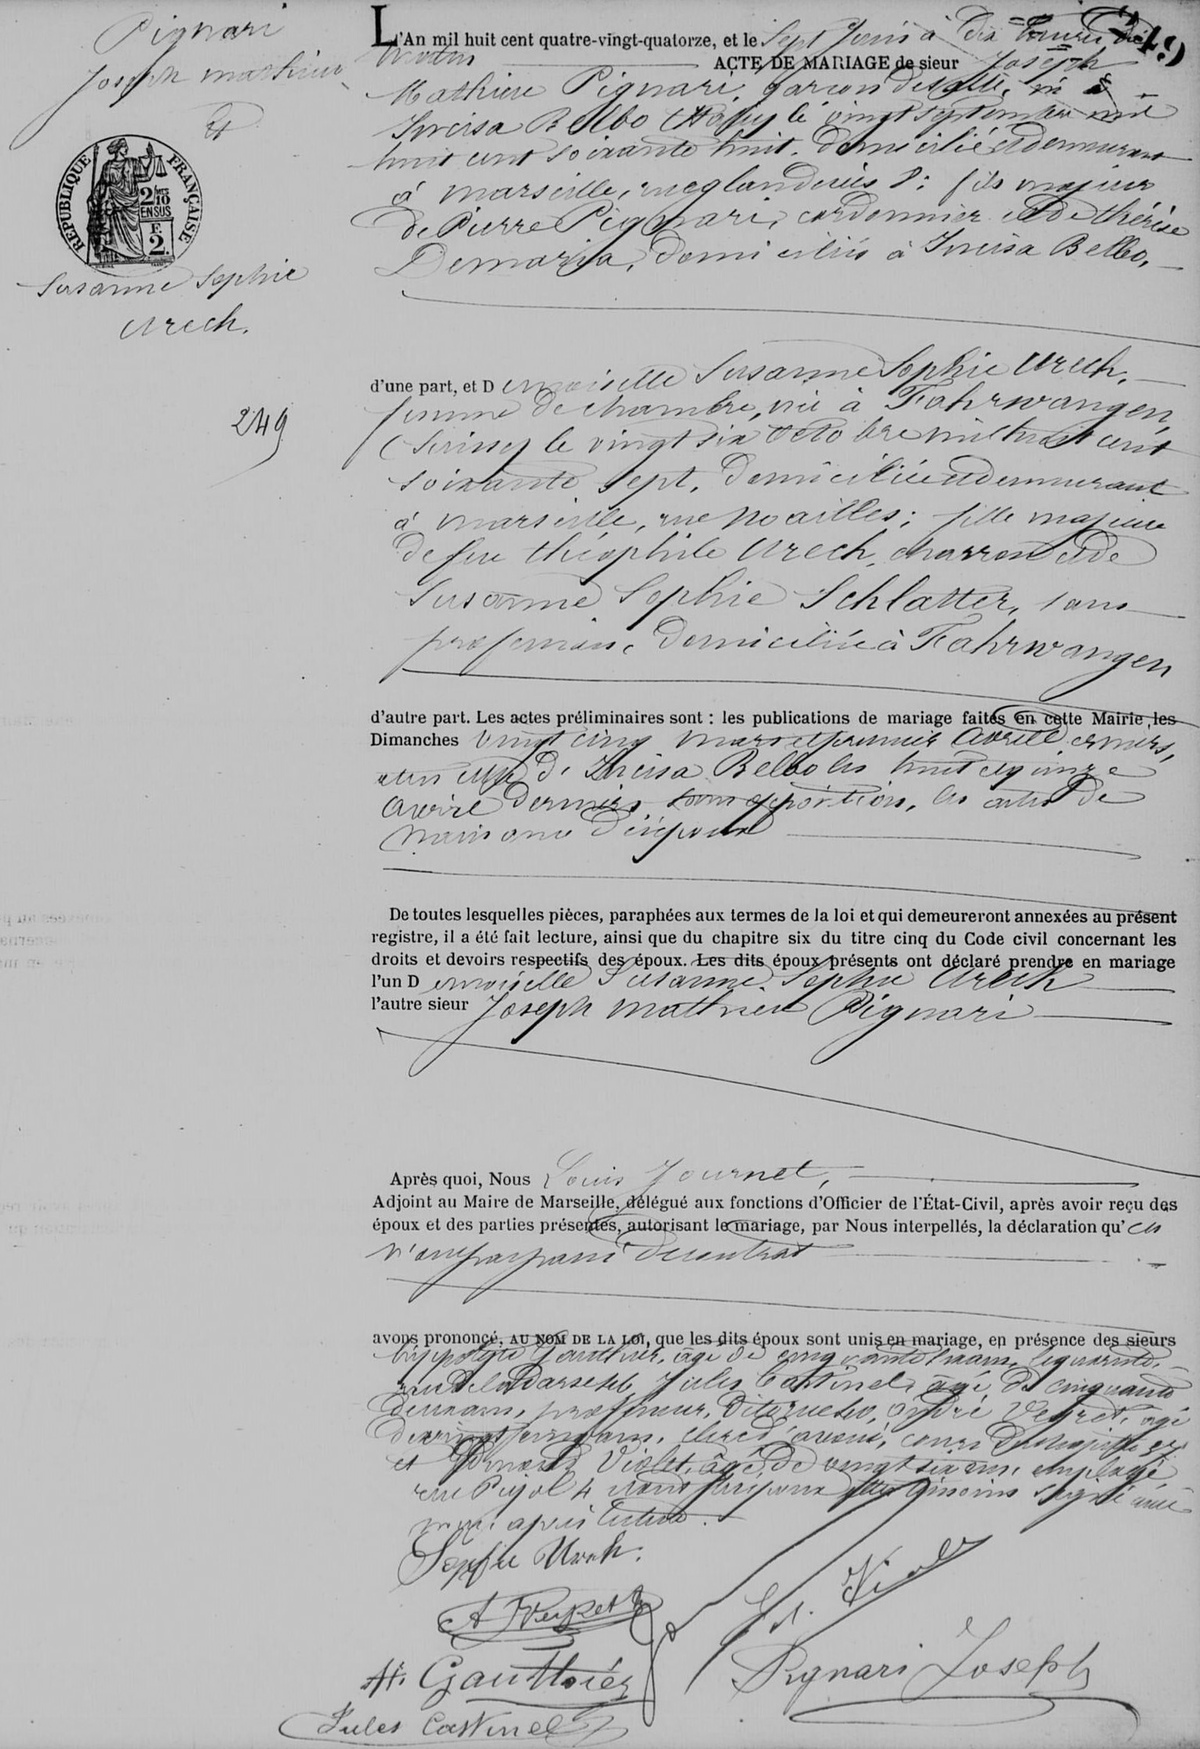 Pignari
Joseph Mathieu
Et
RÉPUBLIQUE FRANÇAISE
2/10
EN SUS
F.
2
Susanne Sophie
Urech.
249
249
L'An mil huit cent quatre-vingt-quatorze, et le Sept Juin à dix heures du
matin ACTE DE MARIAGE de sieur Joseph
Mathieu Pignari, garçon de salle, né à
Incisa Belbo (Italie) le vingt septembre mil
huit cent soixante huit. domicilié et demeurant
à Marseille, rue glandevès 8: fils majeur
de Pierre Pignari, cordonnier et de thérèse
Demaria, domiciliés à Incisa Belbo,
d'une part, et Demoiselle Susanne Sophie Urech,
femme de chambre, née à Fahrwangen
(Suisse) le vingt six octobre mil huit cent
soixante sept, domiciliée et demeurant
à Marseille, rue Noailles; fille majeure
de feu théophile Urech, charron et de
Susanne Sophie Schlatter, sans
profession, domiciliée à Fahrwangen
d'autre part. Les actes préliminaires sont : les publications de mariage faites en cette Mairie, les
Dimanches vingt cinq mars et premier Avril derniers,
à Incisa Belbo les huit et quinze
avril derniers sans opposition, les actes de
naissance des époux
De toutes lesquelles pièces, paraphées aux termes de la loi et qui demeureront annexées au présent
registre, il a été fait lecture, ainsi que du chapitre six du titre cinq du Code civil concernant les
droits et devoirs respectifs des époux. Les dits époux présents ont déclaré prendre en mariage
l'un Demoiselle Susanne Sophie Urech
l'autre sieur Joseph Mathieu Pignari
Après quoi, Nous Louis Journet,
Adjoint au Maire de Marseille, délégué aux fonctions d'Officier de l'État-Civil, après avoir reçu des
époux et des parties présentes, autorisant le mariage, par Nous interpellés, la déclaration qu'ils
n'ont pas passé de contrat
avons prononcé, AU NOM DE LA LOI, que les dits époux sont unis en mariage, en présence des sieurs
hippolyte Gauthier, âgé de cinquante
rue de la Darse Jules Castinel, âgé de cinquante
deux ans, professeur, André Veyret, âgé
de vingt ans, clerc d'avoué, cours
et Edouard Violet, âgé de vingt six ans, employé
rue Pujol 4 époux témoins signé avec
nous après lecture.
Sophie Urech.
A Veyret
Ed. Violet
H. Gauthier
Pignari Joseph
Jules Castinel